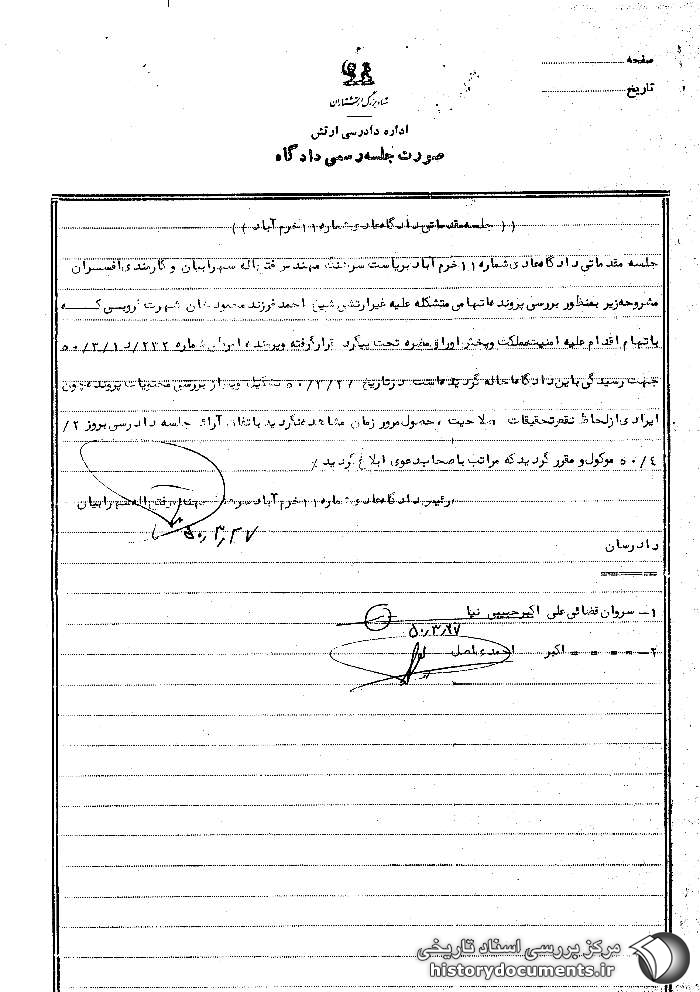 صفحه
تاریخ
اداره دادرسی ارتش
صورت جلسه رسمی دادگاه
(( جلسه مقدماتی دادگاه عادی شماره ۱۱ خرم آباد ))
جلسه مقدماتی دادگاه عادی شماره ۱۱ خرم آباد بریاست سرهنگ مهندس فتح اله سهرابیان و کارمندی افسران
مشروحه زیر بمنظور بررسی پرونده اتهامی متشکله علیه غیرارتشی شیخ احمد فرزند محمودخان شهرت که
باتهام اقدام علیه امنیت مملکت و پخش اوراق مضره تحت پیگرد قرار گرفته و پرونده شماره ۲۳۲/د ۵۰/۳/۱
جهت رسیدگی باین دادگاه احاله گردیده است در تاریخ ۵۰/۳/۲۷ تشکیل و پس از بررسی محتویات پرونده چون
ایرادی از لحاظ نقص تحقیقات صلاحیت ، حصول مرور زمان مشاهده نگردید باتفاق آراء جلسه دادرسی بروز ۲/
۵۰/۴ موکول و مقرر گردید که مراتب باصحاب دعوی ابلاغ گردید /
رئیس دادگاه عادی شماره ۱۱ خرم آباد سرهنگ مهندس فتح اله سهرابیان
۵۰٫۳٫۲۷
دادرسان
۱- سروان قضائی علی اکبر حسیبی نیا
۵۰٫۳٫۲۷
۲- " " اکبر احمدی اصل
مرکز بررسی اسناد تاریخی
historydocuments.ir